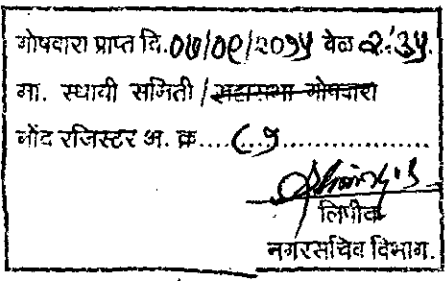 गोषवारा प्राप्त दि. ०७/०९/२०१५ वेळ २:३५
मा. स्थायी समिती / महासभा गोषवारा
नोंद रजिस्टर अ. क्र....८९...............
लिपीक
नगरसचिव विभाग.